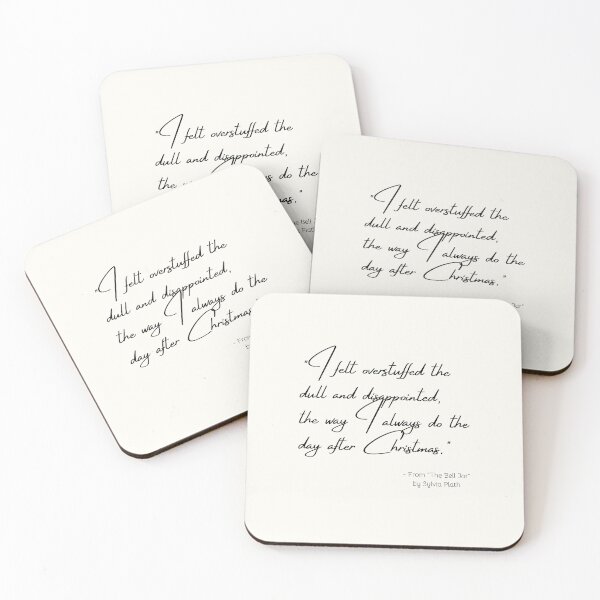 "I felt overstuffed the
dull and disappointed,
the do the
"I felt overstuffed the
dull and disappointed,
the way I always do the
day after Christmas."
"I felt overstuffed the
dull and disappointed,
the way I always do the
day after Christmas
- From
"I felt overstuffed the
dull and disappointed,
the way I always do the
day after Christmas."
- From "The Bell Jar"
by Sylvia Plath